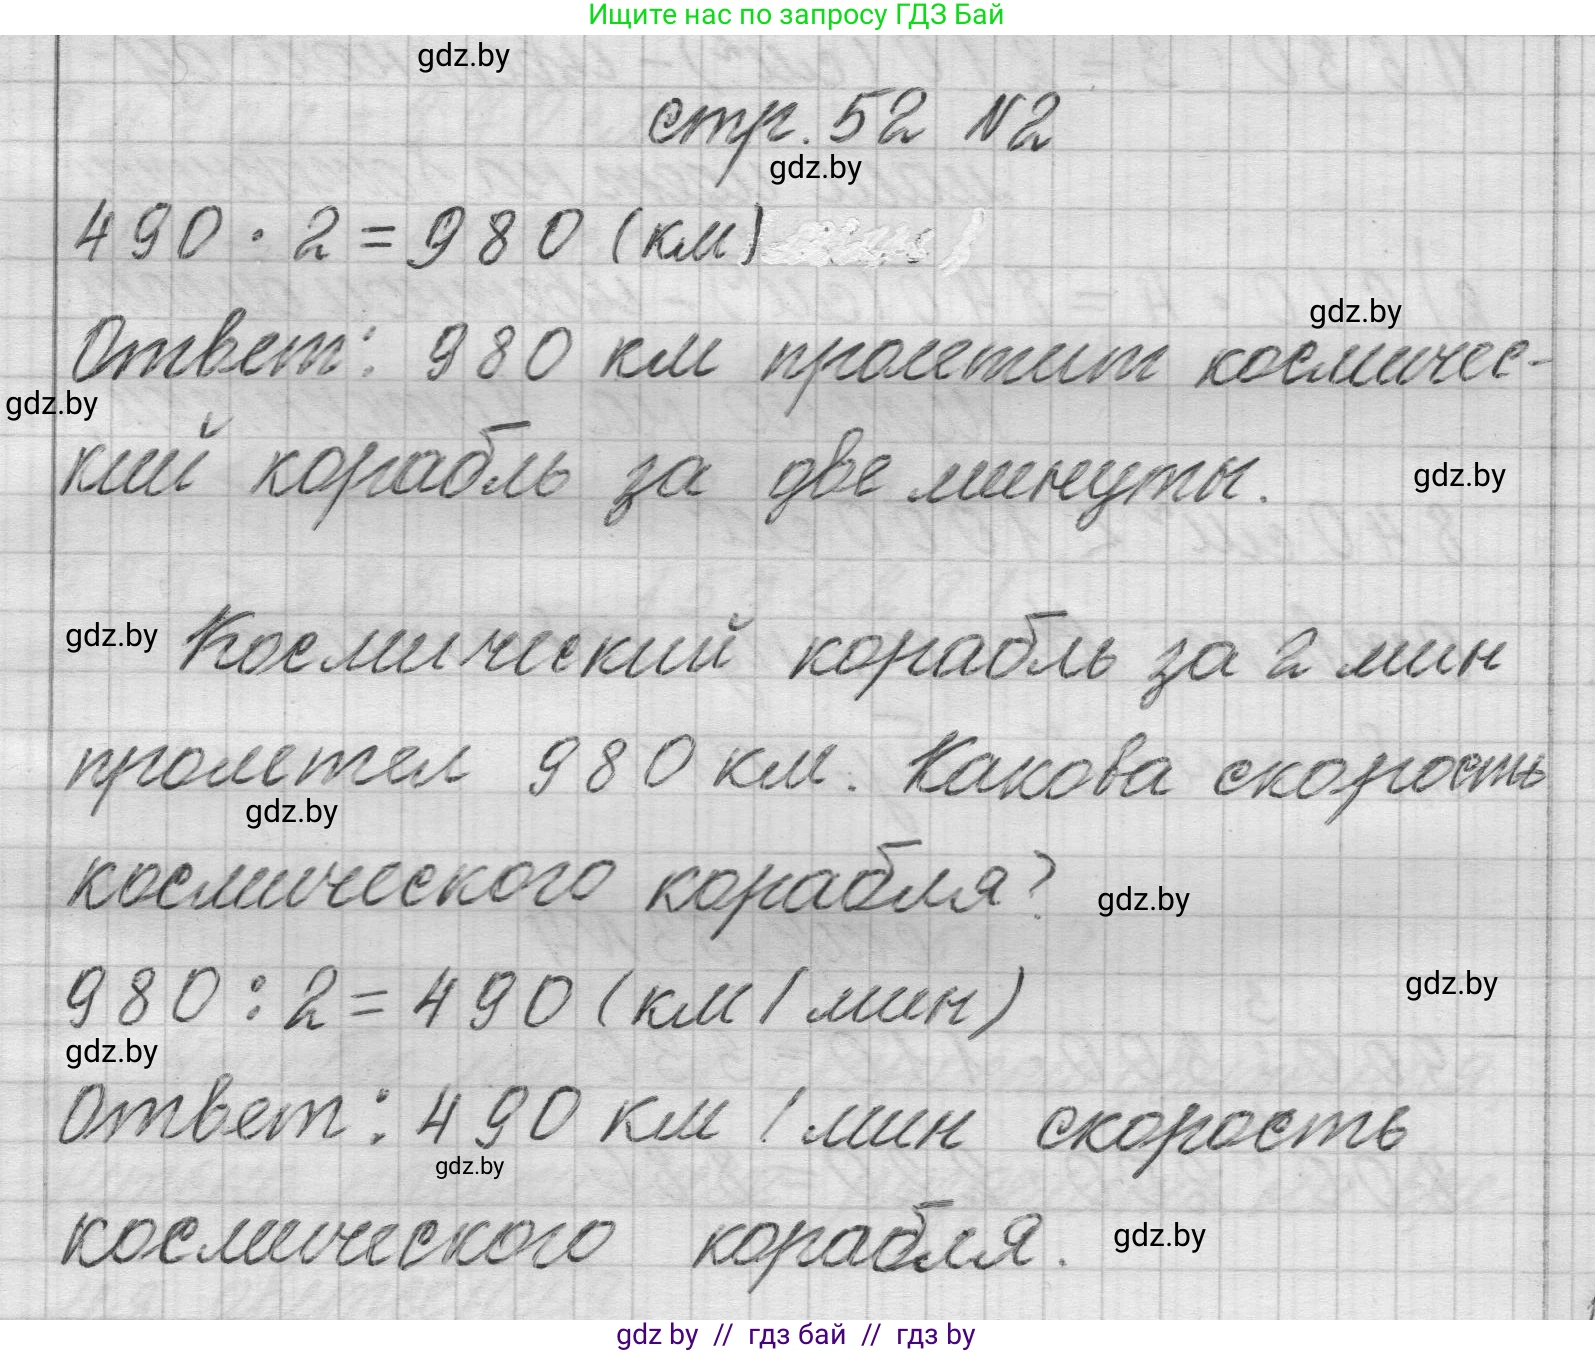 Ищите нас по запросу ГДЗ Бай
gdz.by
стр. 52 №2
gdz.by
490 · 2 = 980 (км)
gdz.by
Ответ: 980 км пролетит космичес-
gdz.by
кий корабль за две минуты.
gdz.by
gdz.by
Космический корабль за 2 мин
пролетел 980 км. Какова скорость
gdz.by
космического корабля?
gdz.by
980 : 2 = 490 (км/мин)
gdz.by
gdz.by
Ответ: 490 км/мин скорость
gdz.by
космического корабля.
gdz.by
gdz by // гдз бай // гдз by